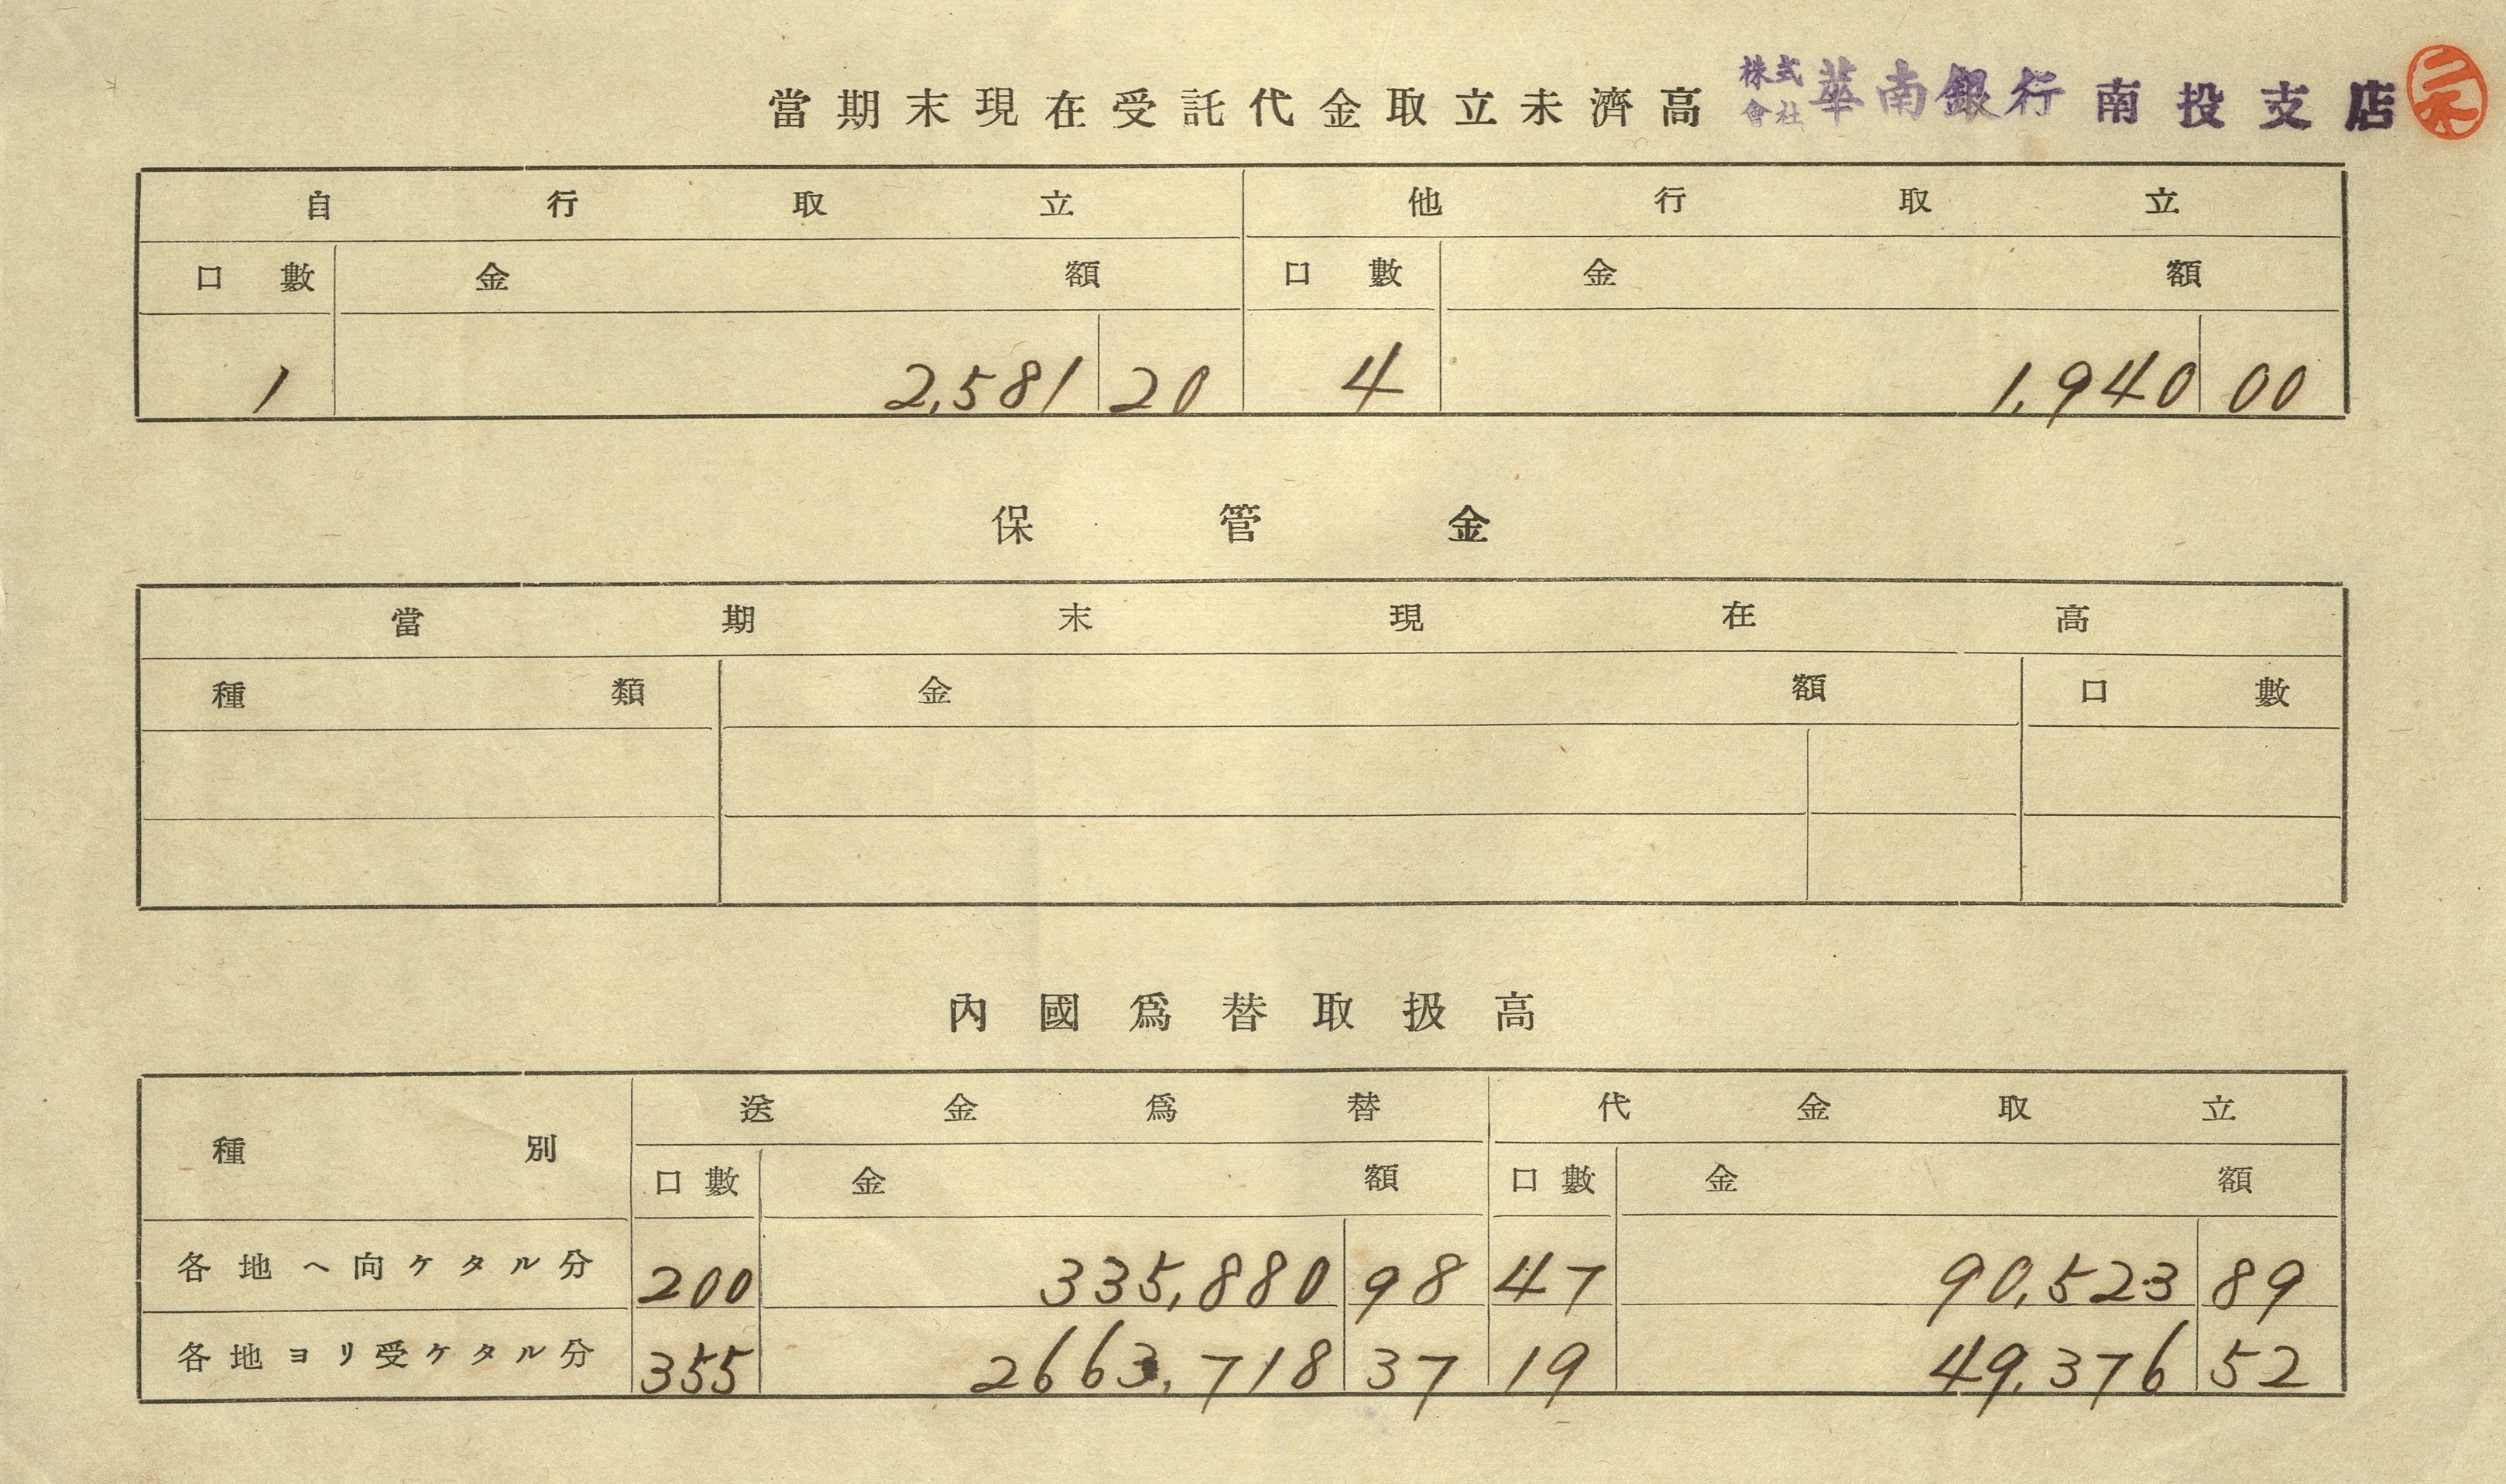 當期末現在受託代金取立未濟高 株式會社 華南銀行 南投支店
自行取立 他行取立
口數 金額 口數 金額
1 2,581 20 4 1,940 00
保管金
當期末現在高
種類 金額 口數
內國爲替取扱高
種別 送金爲替 代金取立
口數 金額 口數 金額
各地ヘ向ケタル分 200 335,880 98 47 90,523 89
各地ヨリ受ケタル分 355 2663,718 37 19 49,376 52